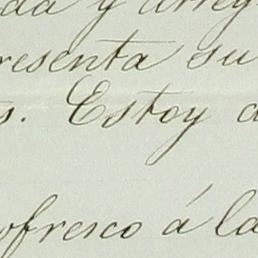 da y arreg
resenta su
s. Estoy a
ofresco á la